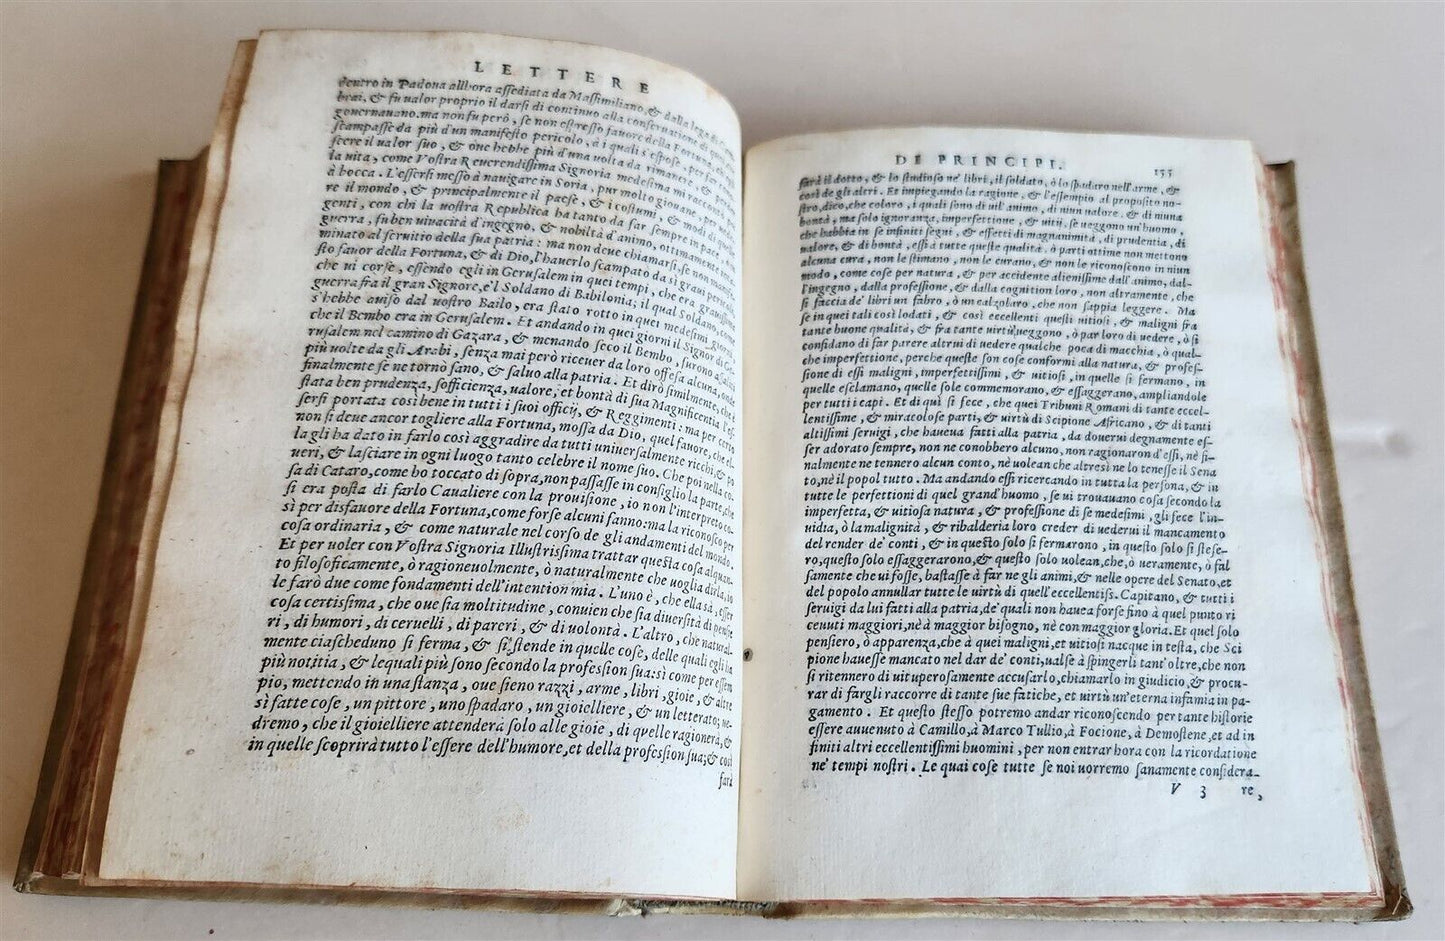 LETTERE
dentro in Padoua allhora assediata da Massimiliano, & dalla lega di Cam
brai, & fu valor proprio il darsi di continuo alla conseruatione di quei che
gouernauano. ma non fu però, se non espresso fauore della Fortuna, che
scampasse da più d'un manifesto pericolo, à i quali s'espose, per far
scere il valor suo, & oue hebbe più d'una volta da rimanere, &
la vita, come Vostra Reuerendissima Signoria medesima mi raccontò
à bocca. L'essersi messo à nauigare in Soria, pur molto giouane, per
re il mondo, & principalmente il paese, & i costumi, & modi di quelle
genti, con chi la vostra Republica ha tanto da far sempre in pace, & in
guerra, fu ben viuacità d'ingegno, & nobiltà d'animo, ottimamente
minato al seruitio della sua patria: ma non deue chiamarsi, se non
sto fauor della Fortuna, & di Dio, l'hauerlo scampato da sì graui pericoli,
che ui corse, essendo egli in Gerusalem in quei tempi, che era grauissima
guerra fra il gran Signore, e'l Soldano di Babilonia; il qual Soldano, come
s'hebbe auiso dal uostro Bailo, era stato rotto in quei medesimi giorni,
che il Bembo era in Gerusalem. Et andando in quei giorni il Signor di
rusalem nel camino di Gazara, & menando seco il Bembo, furono assaliti
più volte da gli Arabi, senza mai però riceuer da loro offesa alcuna, onde
finalmente se ne tornò sano, & saluo alla patria. Et dirò similmente, che è
stata ben prudenza, sofficienza, valore, et bontà di sua Magnificentia l'es-
sersi portata così bene in tutti i suoi officij, & Reggimenti: ma per certo
non si deue ancor togliere alla Fortuna, mossa da Dio, quel fauore, che el-
la gli ha dato in farlo così aggradire da tutti uniuersalmente ricchi, & po
ueri, & lasciare in ogni luogo tanto celebre il nome suo. Che poi nella co-
sa di Cataro, come ho toccato di sopra, non passasse in consiglio la parte, che
si era posta di farlo Caualiere con la prouisione, io non l'interpreto co-
sì per disfauore della Fortuna, come forse alcuni fanno: ma la riconosco per
cosa ordinaria, & come naturale nel corso de gli andamenti del mondo.
Et per uoler con Vostra Signoria Illustrissima trattar questa cosa alquan-
to filosoficamente, ò ragioneuolmente, ò naturalmente che uoglia dirla, io
le farò due come fondamenti dell'intention mia. L'uno è, che ella sà, esser
cosa certissima, che oue sia moltitudine, conuien che sia diuersità di pensie
ri, di humori, di ceruelli, di pareri, & di uolontà. L'altro, che natural-
mente ciascheduno si ferma, & si stende in quelle cose, delle quali egli ha
più notitia, & lequali più sono secondo la profession sua: sì come per essem
pio, mettendo in una stanza, oue sieno razzi, arme, libri, gioie, & altre
sì fatte cose, un pittore, uno spadaro, un gioielliere, & un letterato; ue-
dremo, che il gioielliere attenderà solo alle gioie, di quelle ragionerà, &
in quelle scoprirà tutto l'essere dell'humore, et della profession sua; & così
farà
DE PRINCIPI. 155
farà il dotto, & lo studioso ne' libri, il soldato, ò lo spadaro nell'arme, &
così de gli altri. Et impiegando la ragione, & l'essempio al proposito no-
stro, dico, che coloro, i quali sono di uil'animo, di niun ualore, & di niuna
bontà, ma solo ignoranza, imperfettione, & uitij, se ueggono un'huomo,
che habbia in se infiniti segni, & effetti di magnanimità, di prudentia, di
ualore, & di bontà, essi à tutte queste qualità, ò parti ottime non mettono
alcuna cura, non le stimano, non le curano, & non le riconoscono in niun
modo, come cose per natura, & per accidente alienissime dall'animo, dal-
l'ingegno, dalla professione, & dalla cognition loro, non altramente, che
si faccia de' libri un fabro, ò un calzolaro, che non sappia leggere. Ma
se in quei tali così lodati, & così eccellenti questi uitiosi, & maligni fra
tante buone qualità, & fra tante uirtù ueggono, ò par loro di uedere, ò si
confidano di far parere altrui di uedere qualche poca di macchia, ò qual-
che imperfettione, perche queste son cose conformi alla natura, & profes-
sione di essi maligni, imperfettissimi, & uitiosi, in quelle si fermano, in
quelle esclamano, quelle sole commemorano, & essaggerano, ampliandole
per tutti i capi. Et di quì si fece, che quei Tribuni Romani di tante eccel-
lentissime, & miracolose parti, & uirtù di Scipione Africano, & di tanti
altissimi seruigi, che haueua fatti alla patria, da douerui degnamente es-
ser adorato sempre, non ne conobbero alcuno, non ragionaron d'essi, nè fi-
nalmente ne tennero alcun conto, nè uolean che altresì ne lo tenesse il Sena
to, nè il popol tutto. Ma andando essi ricercando in tutta la persona, & in
tutte le perfettioni di quel grand'huomo, se ui trouauano cosa secondo la
imperfetta, & uitiosa natura, & professione di se medesimi, gli fece l'in-
uidia, ò la malignità, & ribalderia loro creder di uederui il mancamento
del render de' conti, & in questo solo si fermarono, in questo solo si stese-
ro, questo solo essaggerarono, & questo solo uolean, che, ò ueramente, ò fal
samente che ui fosse, bastasse à far ne gli animi, & nelle opere del Senato, et
del popolo annullar tutte le uirtù di quell'eccellentiss. Capitano, & tutti i
seruigi da lui fatti alla patria, de' quali non hauea forse fino à quel punto ri
ceuuti maggiori, nè à maggior bisogno, nè con maggior gloria. Et quel solo
pensiero, ò apparenza, che à quei maligni, et uitiosi nacque in testa, che Sci
pione hauesse mancato nel dar de' conti, ualse à spingerli tant'oltre, che non
si ritennero di uituperosamente accusarlo, chiamarlo in giudicio, & procu-
rar di fargli raccorre di tante sue fatiche, et uirtù un'eterna infamia in pa-
gamento. Et questo stesso potremo andar riconoscendo per tante historie
essere auuenuto à Camillo, à Marco Tullio, à Focione, à Demostene, et ad in
finiti altri eccellentissimi huomini, per non entrar hora con la ricordatione
ne' tempi nostri. Le quai cose tutte se noi uorremo sanamente considera-
V 3 re,